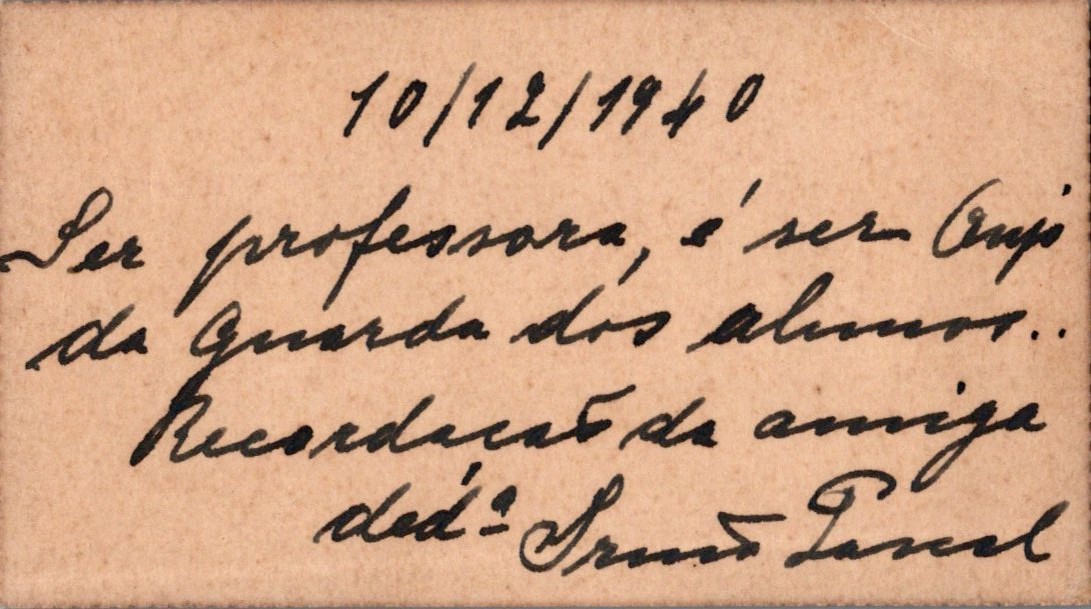 10/12/1940
Ser professora, é ser Anjo
da Guarda dos alunos..
Recordacaõ da amiga
ded.ª Irmã